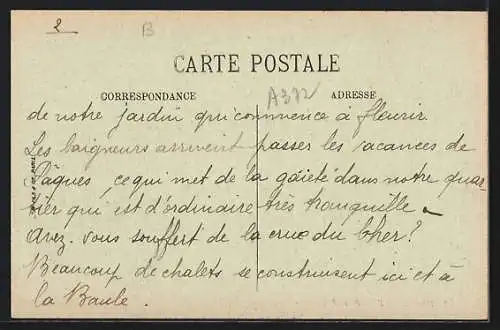 2
B
CARTE POSTALE
A372
CORRESPONDANCE
ADRESSE
de notre jardin qui commence à fleurir.
Les baigneurs arrivent passer les vacances de
Pâques, ce qui met de la gaieté dans notre quar-
tier qui est d'ordinaire très tranquille.
Avez-vous souffert de la crue du Cher?
Beaucoup de chalets se construisent ici et à
la Baule.